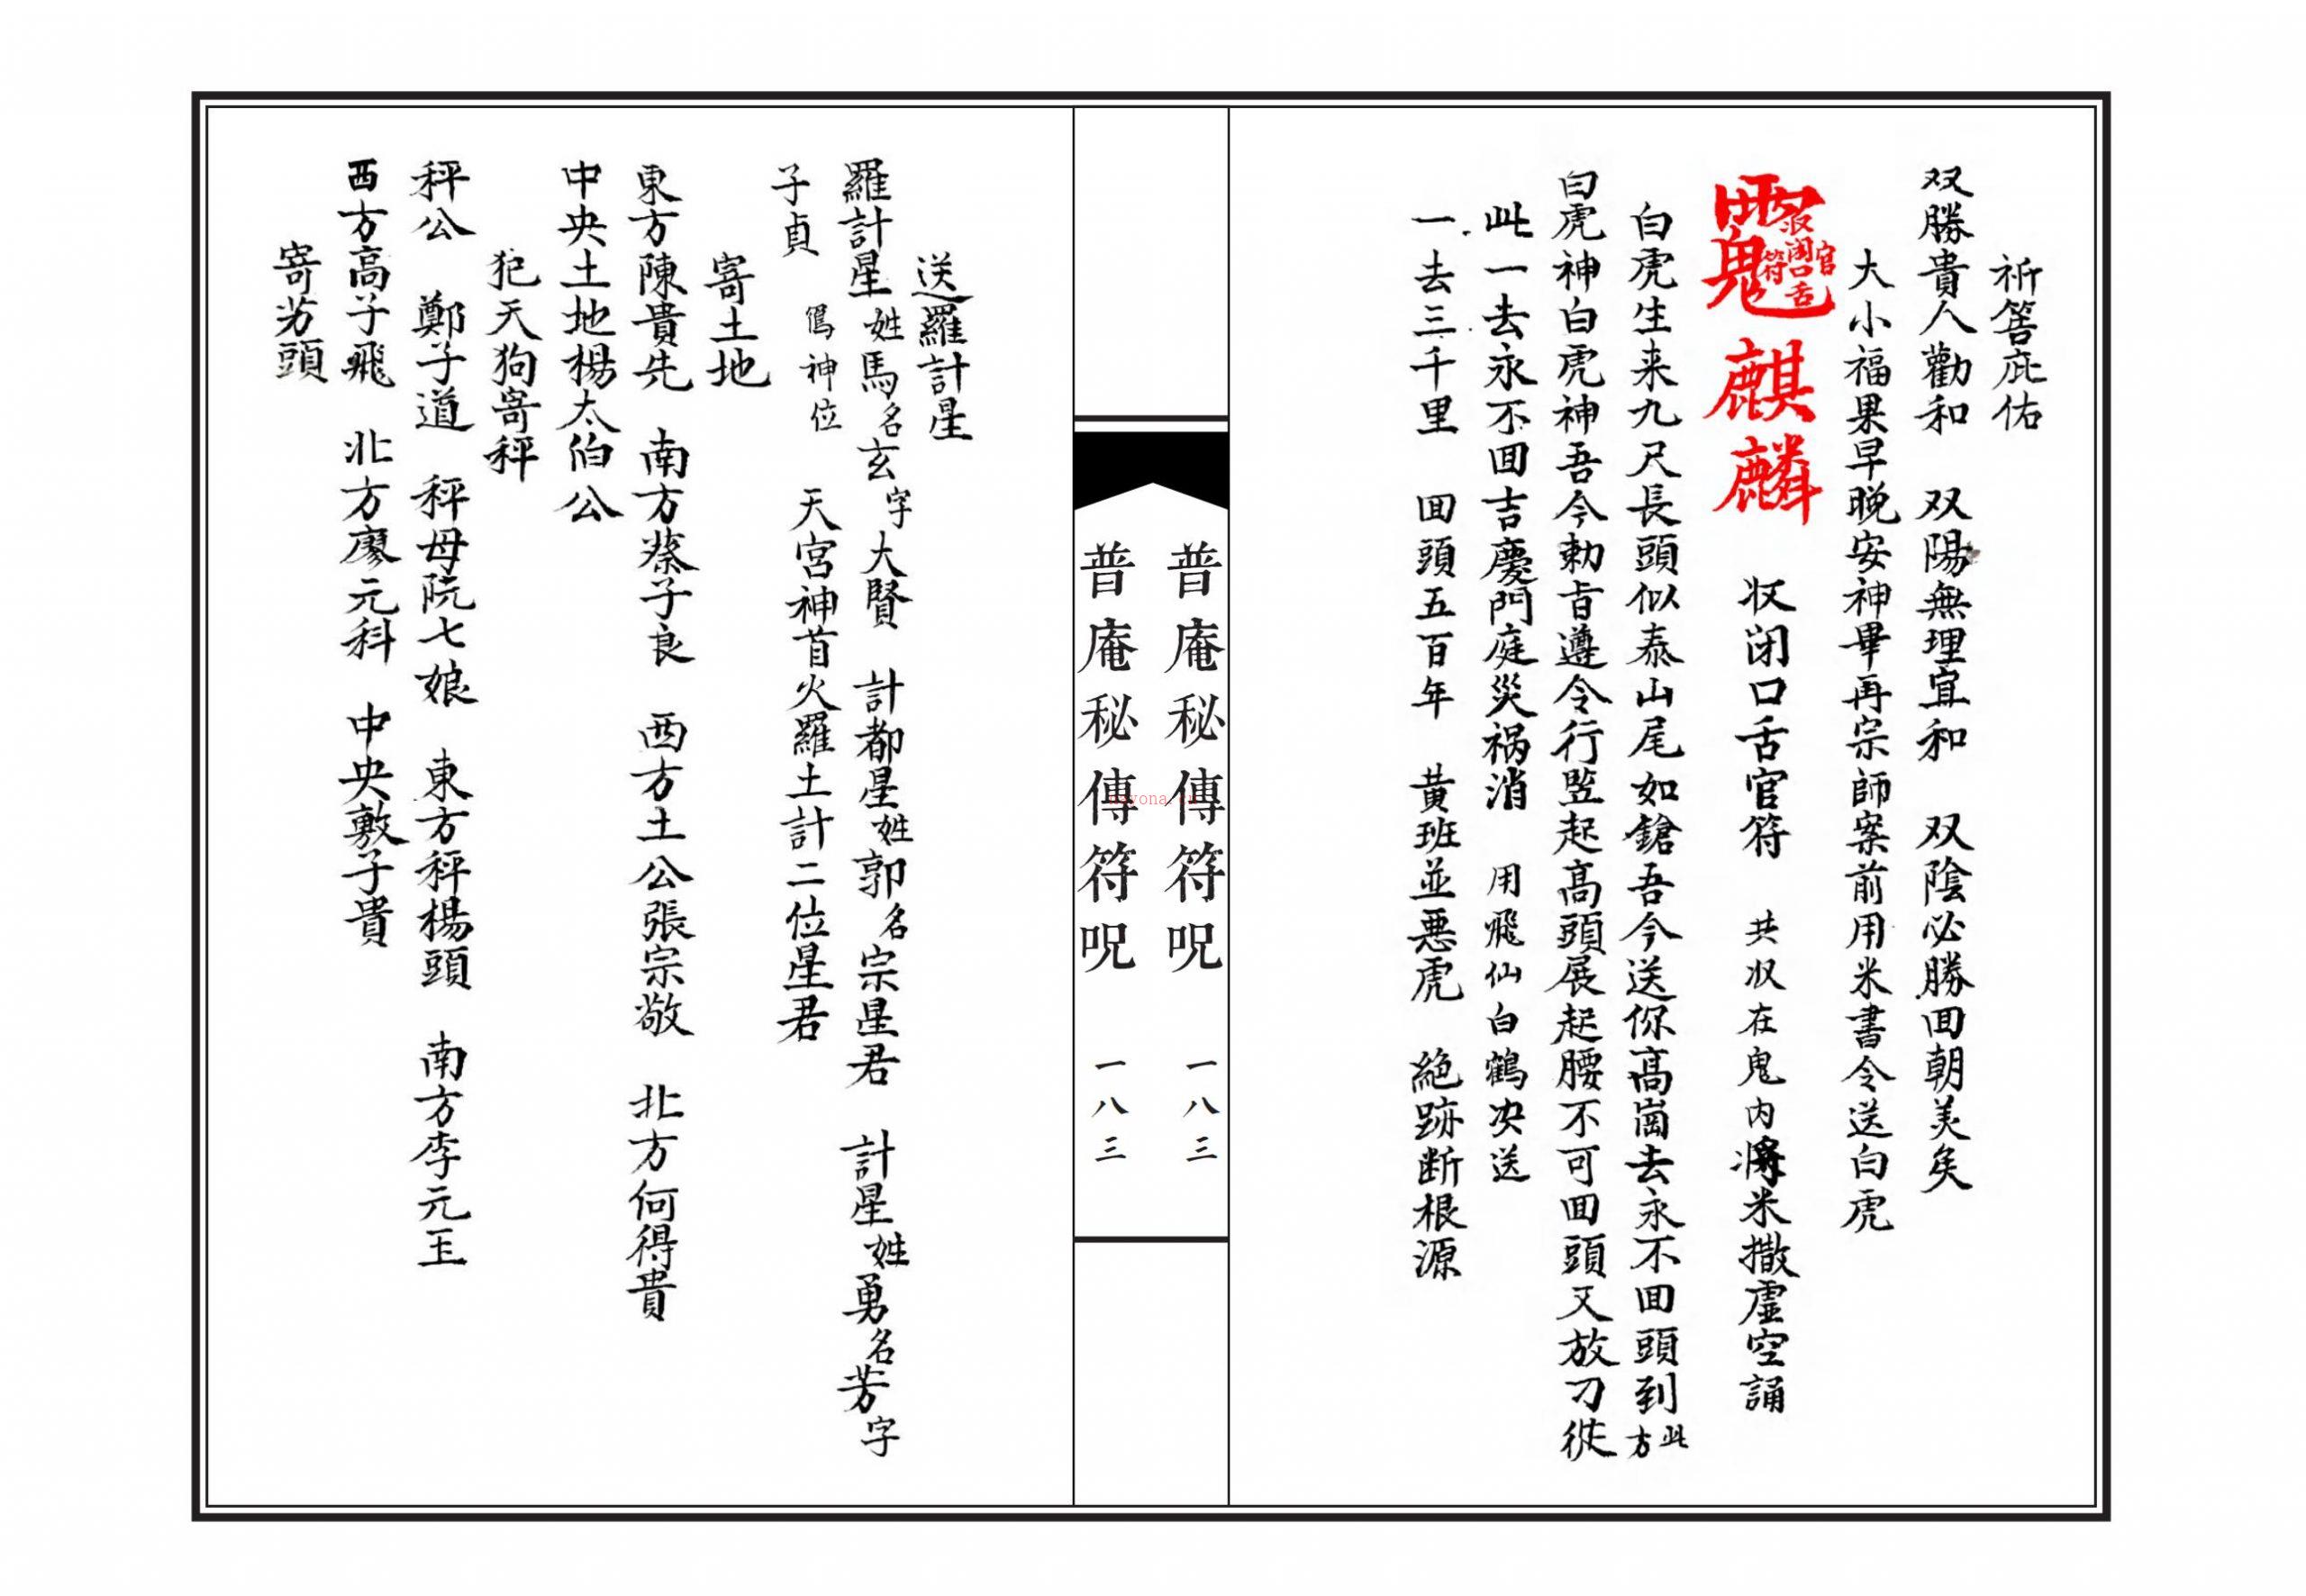 祈筶庇佑
双勝貴人勸和 双陽無理宜和 双陰必勝回朝美矣
大小福果早晚安神畢再宗師案前用米書令送白虎
收閉口舌官符
麒麟 収闭口舌官符 共収在鬼内將米撒虛空誦
白虎生来九尺長頭似泰山尾如鎗吾今送你高崗去永不回頭到此方
白虎神白虎神吾今勅旨遵令行竖起高頭展起腰不可回頭又放刁從
此一去永不回吉慶門庭災祸消 用飛仙白鶴决送
一去三千里 回頭五百年 黄班並悪虎 絶跡断根源
普庵秘傳符呪 一八三
普庵秘傳符呪 一八三
送羅計星
羅計星姓馬名玄字大賢 計都星姓郭名宗星君 計星姓勇名芳字
子貞 爲神位 天宮神首火羅土計二位星君
寄土地
東方陳貴先 南方蔡子良 西方土公張宗敬 北方何得貴
中央土地楊太伯公
犯天狗寄秤
秤公 鄭子道 秤母阮七娘 東方秤楊頭 南方李元玉
西方高子飛 北方廖元科 中央敷子貴
寄芳頭